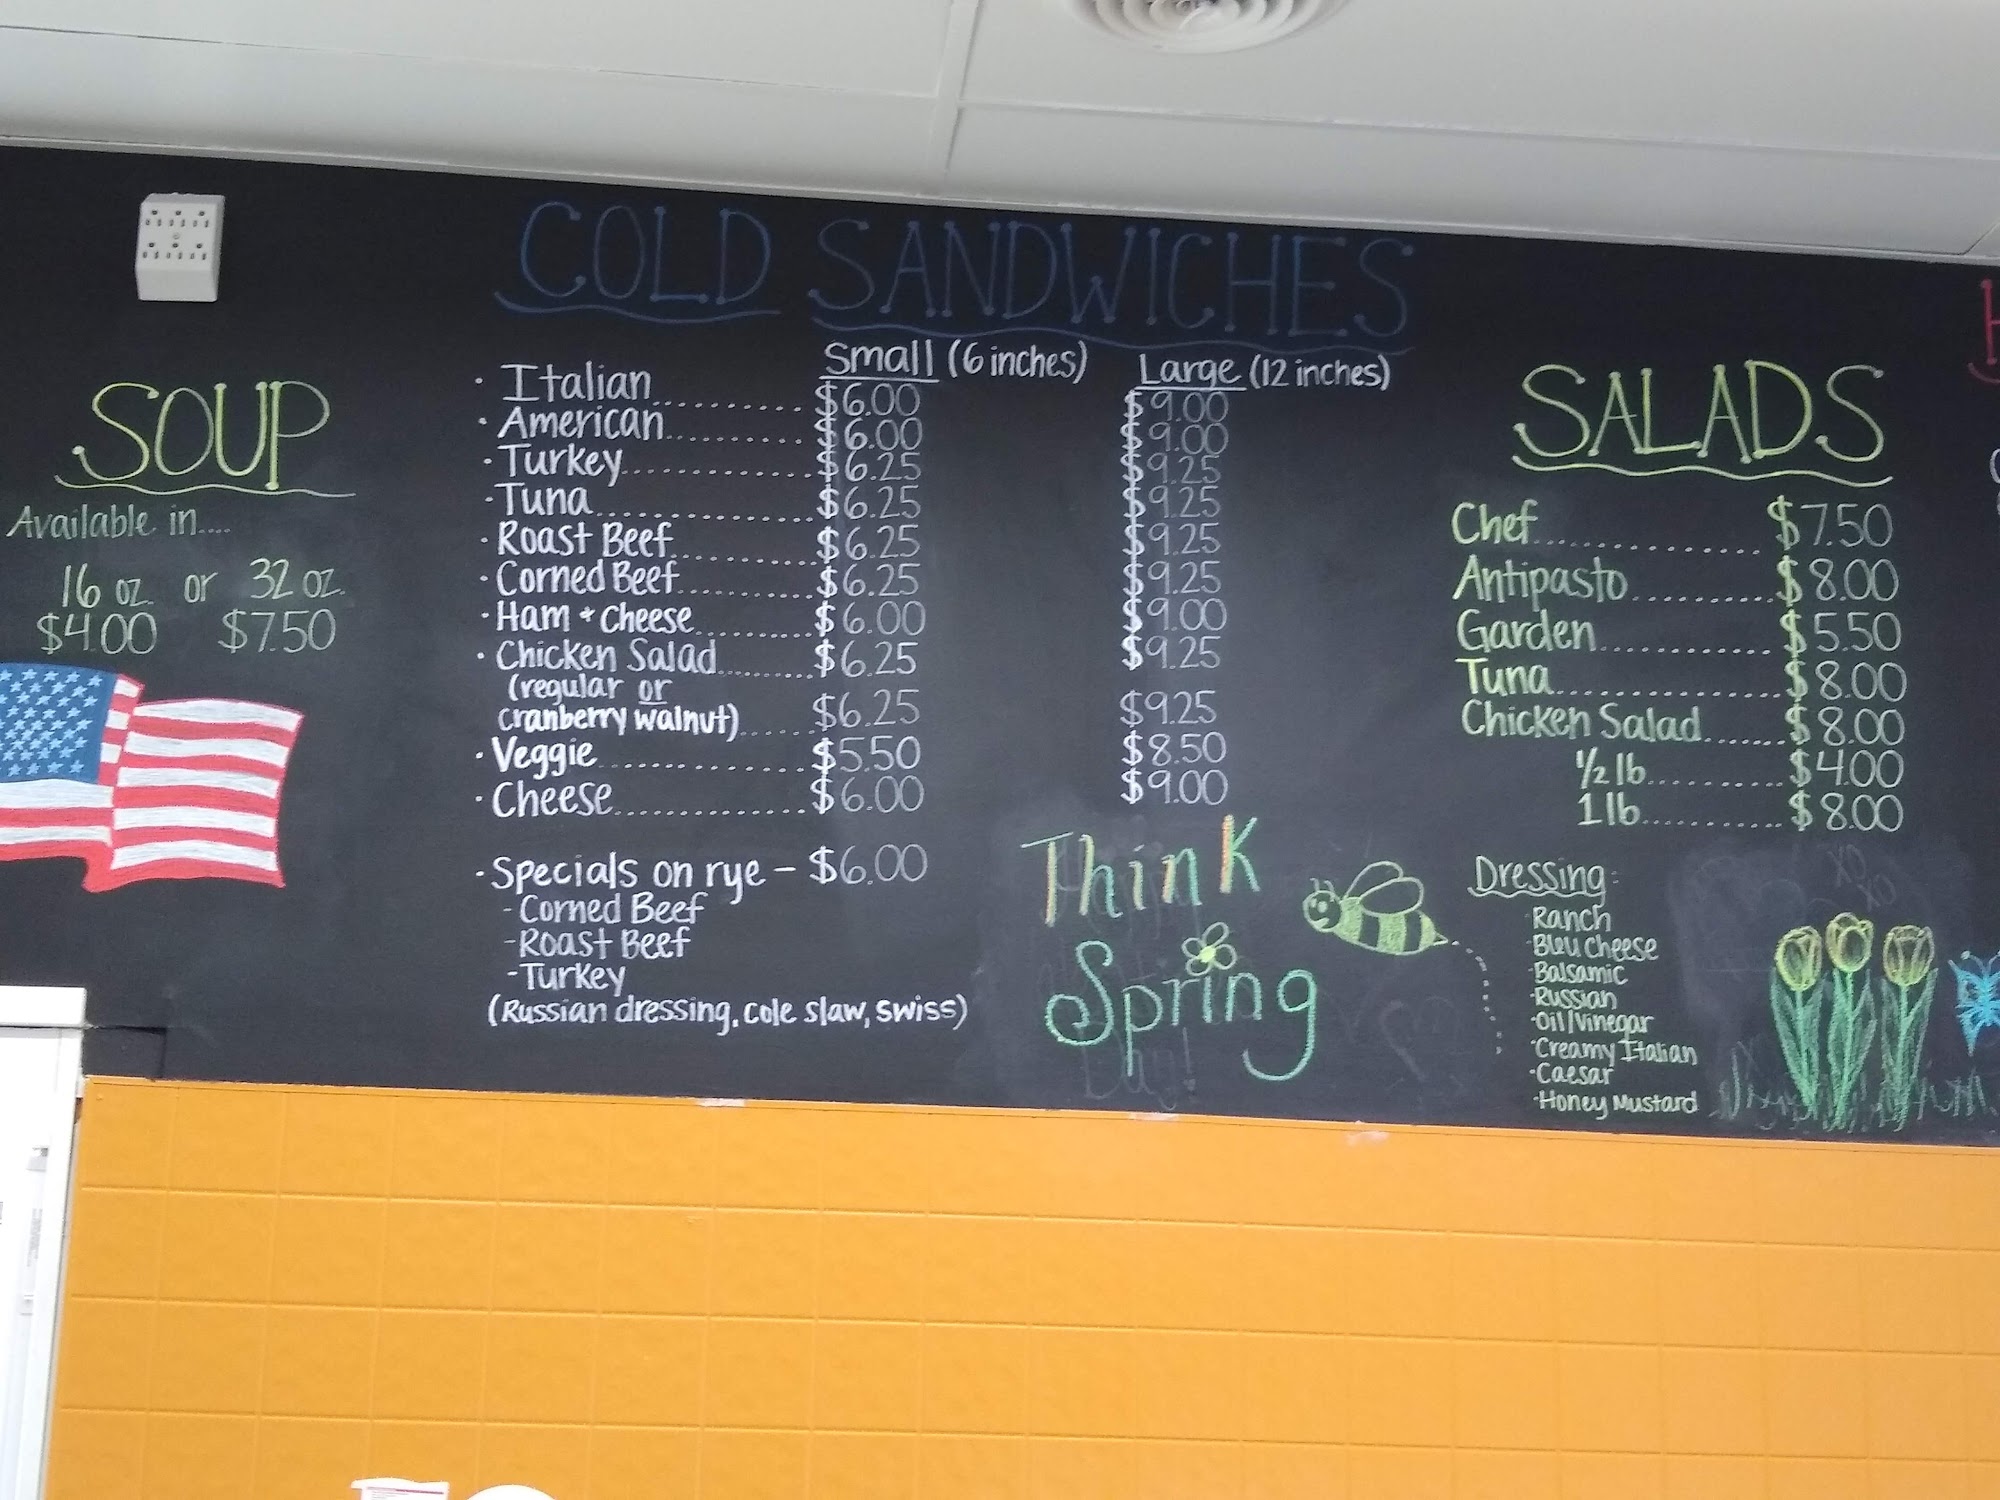 SOUP
Available in....
16 oz. or 32 oz.
$4.00 $7.50
COLD SANDWICHES
Small (6 inches) Large (12 inches)
· Italian.......... $6.00 $9.00
· American.......... $6.00 $9.00
· Turkey............ $6.25 $9.25
· Tuna.............. $6.25 $9.25
· Roast Beef.......... $6.25 $9.25
· Corned Beef.......... $6.25 $9.25
· Ham + Cheese.......... $6.00 $9.00
· Chicken Salad........ $6.25 $9.25
(regular or
cranberry walnut)...... $6.25 $9.25
· Veggie.............. $5.50 $8.50
· Cheese.............. $6.00 $9.00
· Specials on rye - $6.00
- Corned Beef
- Roast Beef
- Turkey
(Russian dressing, cole slaw, swiss)
Think
Spring
SALADS
Chef.............. $7.50
Antipasto.......... $8.00
Garden............ $5.50
Tuna.............. $8.00
Chicken Salad...... $8.00
1/2 lb.......... $4.00
1 lb............ $8.00
Dressing:
· Ranch
· Bleu Cheese
· Balsamic
· Russian
· Oil/Vinegar
· Creamy Italian
· Caesar
· Honey Mustard
XO
XO